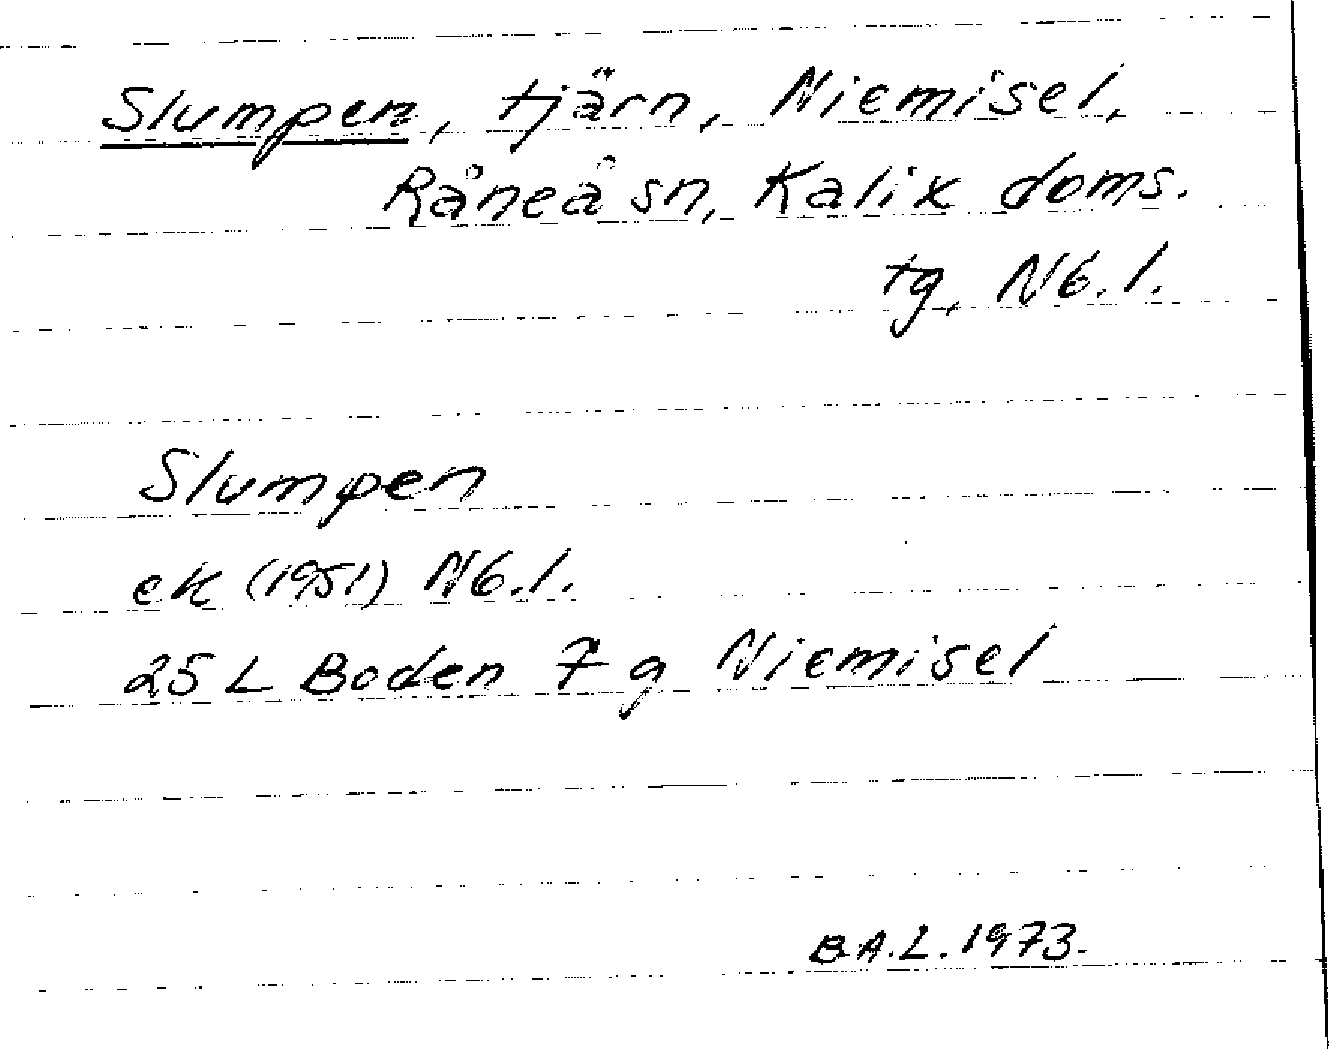 Slumpen, tjärn, Niemisel,
Råneå sn, Kalix doms.
tg, Nb. l.
Slumpen
ek (1951) Nb. l.
25 L Boden 7 g Niemisel
B.A.L. 1973.